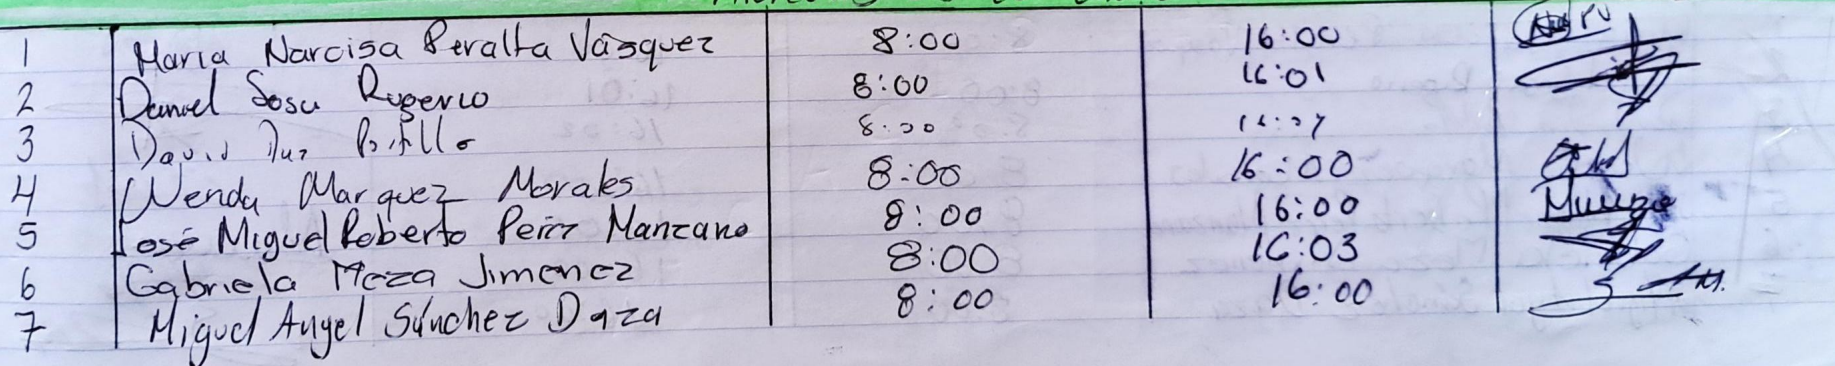 1 Maria Narcisa Peralta Vásquez 8:00 16:00
2 Daniel Sosa Rugerio 8:00 16:01
3 David Portillo 8:00
4 Wendy Marquez Morales 8:00 16:00
5 José Miguel Roberto Pérez Manzano 8:00 16:00
6 Gabriela Meza Jimenez 8:00 16:03
7 Miguel Angel Sánchez Daza 8:00 16:00